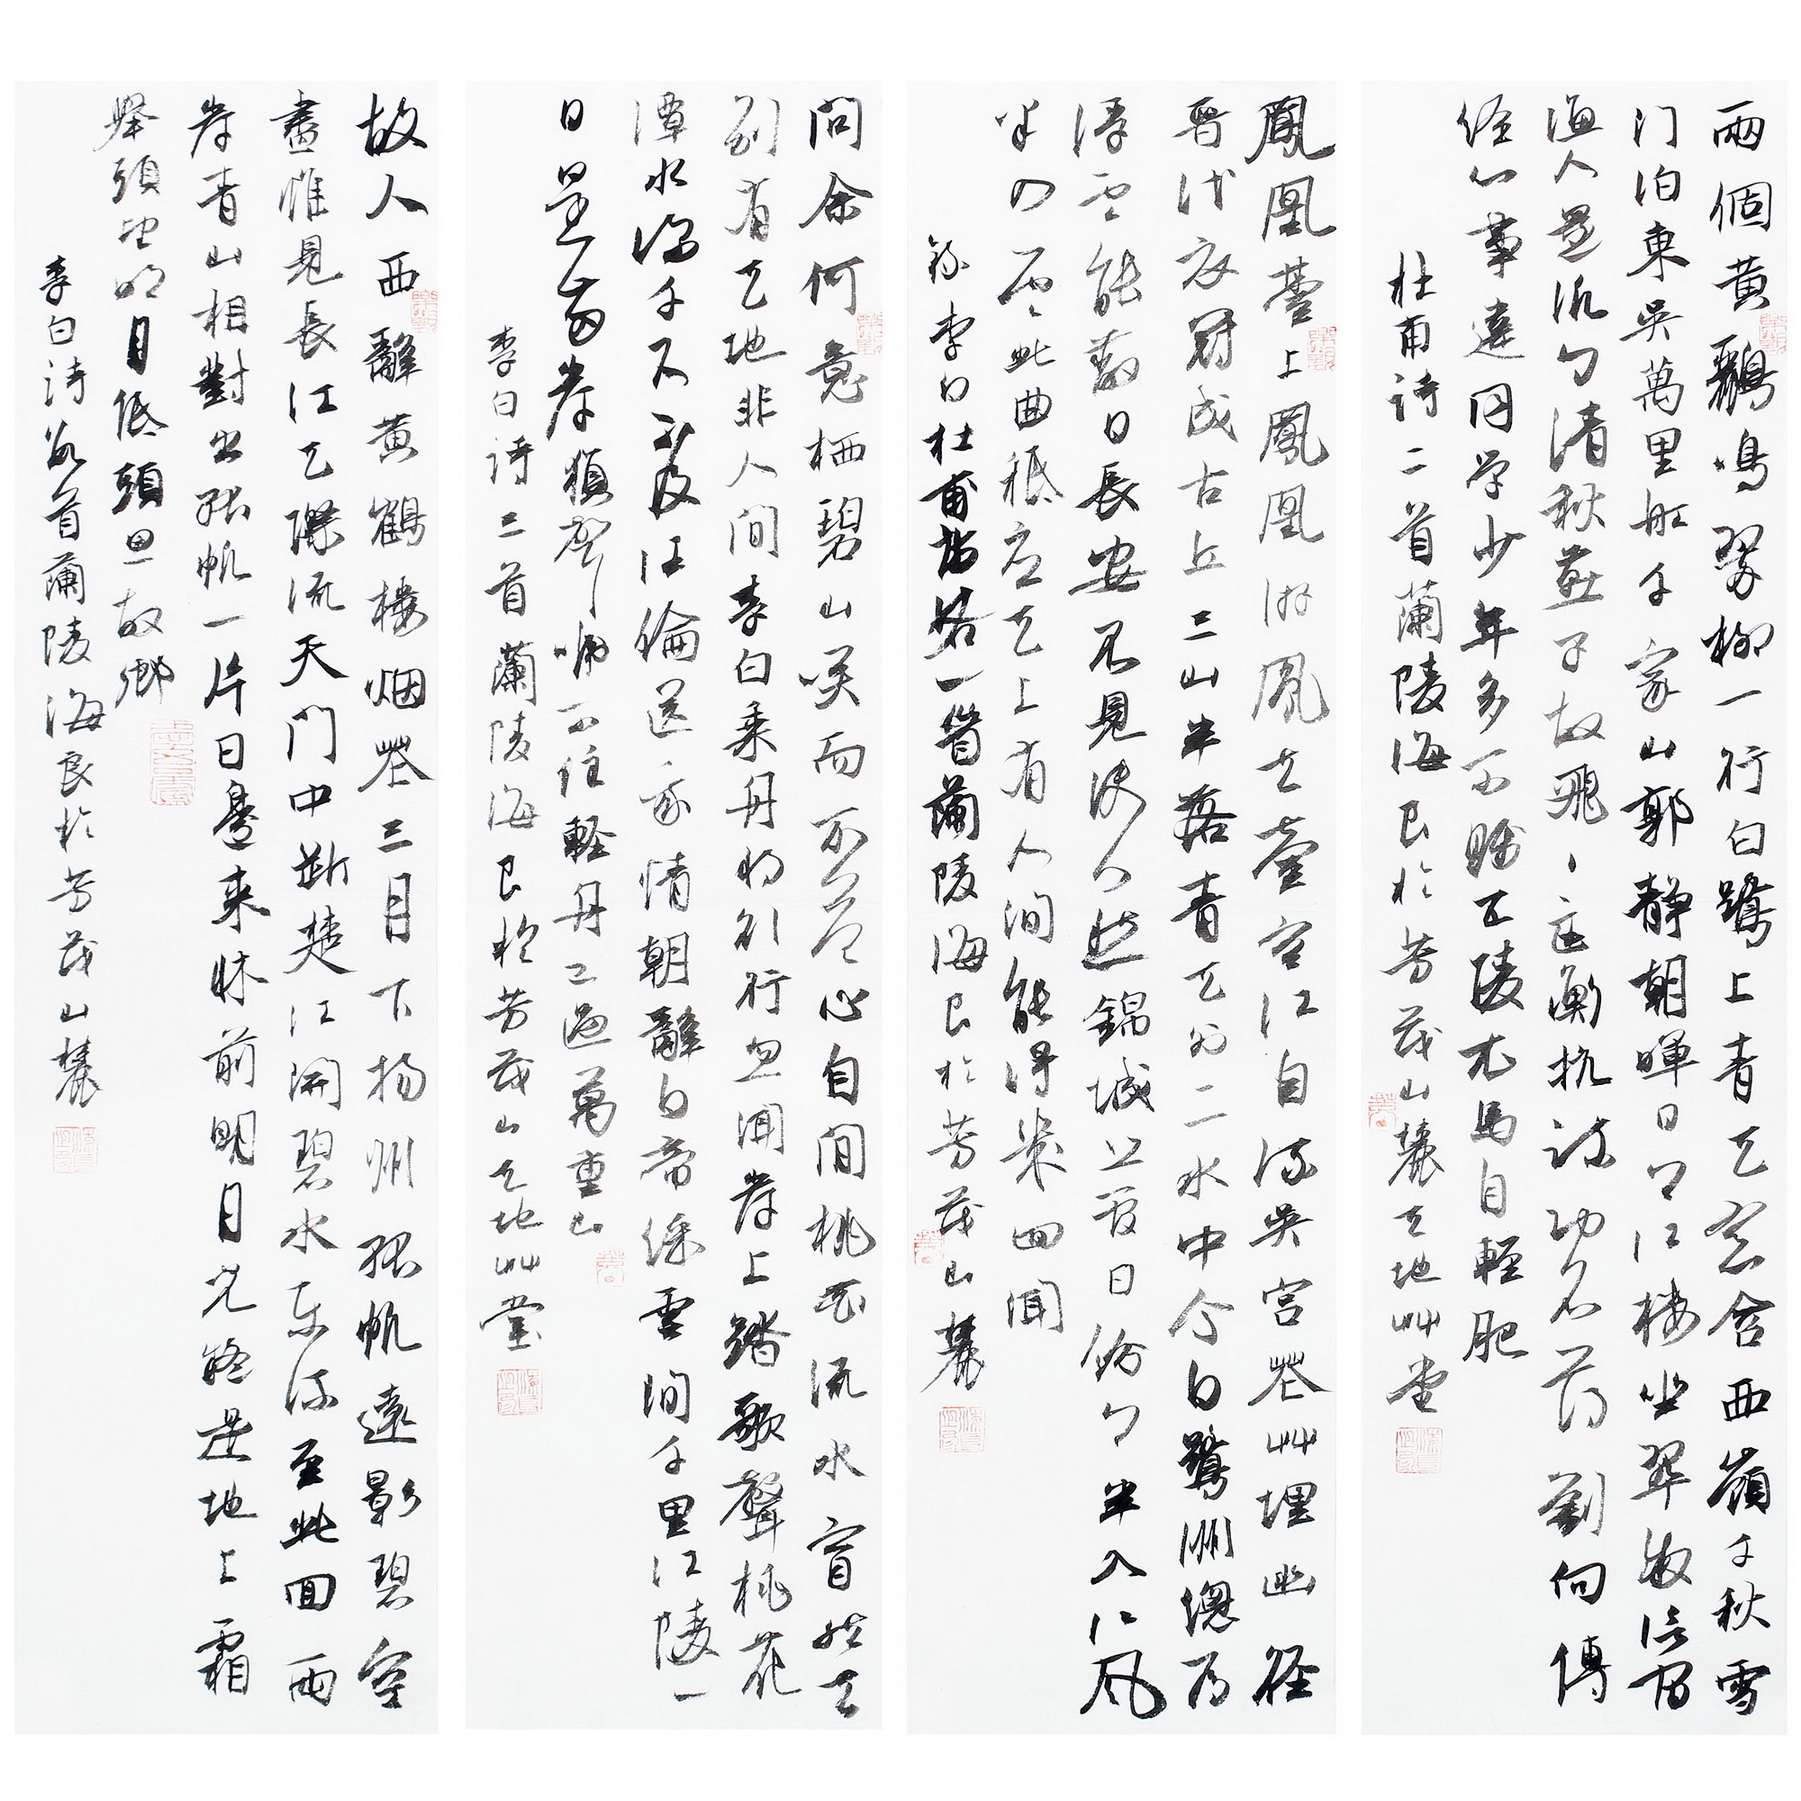 兩個黃鸝鳴翠柳一行白鷺上青天窓含西嶺千秋雪
门泊東吳萬里船千家山郭静朝暉日日江楼坐翠微信宿
漁人還汎汎清秋燕子故飛飛匡衡抗疏功名薄劉向傳
經心事違同学少年多不賤五陵衣馬自輕肥
杜甫詩二首蘭陵海良於芳茂山麓天地艸堂
鳳凰臺上鳳凰游鳳去臺空江自流吳宫花艸埋幽径
晋代衣冠成古丘三山半落青天外二水中分白鷺洲總为
浮雲能蔽日長安不見使人愁錦城丝管日纷纷半入江风
半入雲此曲祗应天上有人间能得幾回聞
錄李白杜甫詩各一首蘭陵海良於芳茂山麓
問余何意栖碧山笑而不答心自閒桃花流水窅然去
别有天地非人間李白乘舟将欲行忽聞岸上踏歌聲桃花
潭水深千尺不及汪倫送我情朝辭白帝彩雲间千里江陵一
日還两岸猿聲啼不住輕舟已過萬重山
李白詩三首蘭陵海良於芳茂山天地艸堂
故人西辭黄鶴楼烟花三月下扬州孤帆遠影碧空
盡惟見長江天際流天门中斷楚江開碧水东流至此回兩
岸青山相對出孤帆一片日邊来床前明月光疑是地上霜
舉頭望明月低頭思故鄉
李白詩數首蘭陵海良於芳茂山麓